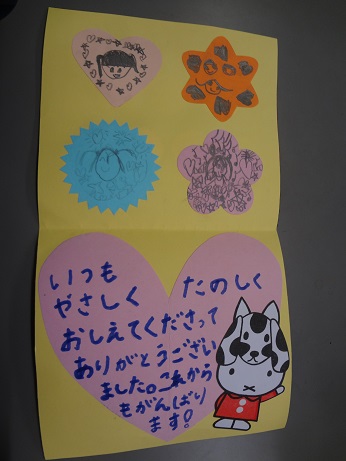 いつも たのしく
やさしく
おしえてくださって
ありがとうござい
ました。これから
もがんばり
ます!